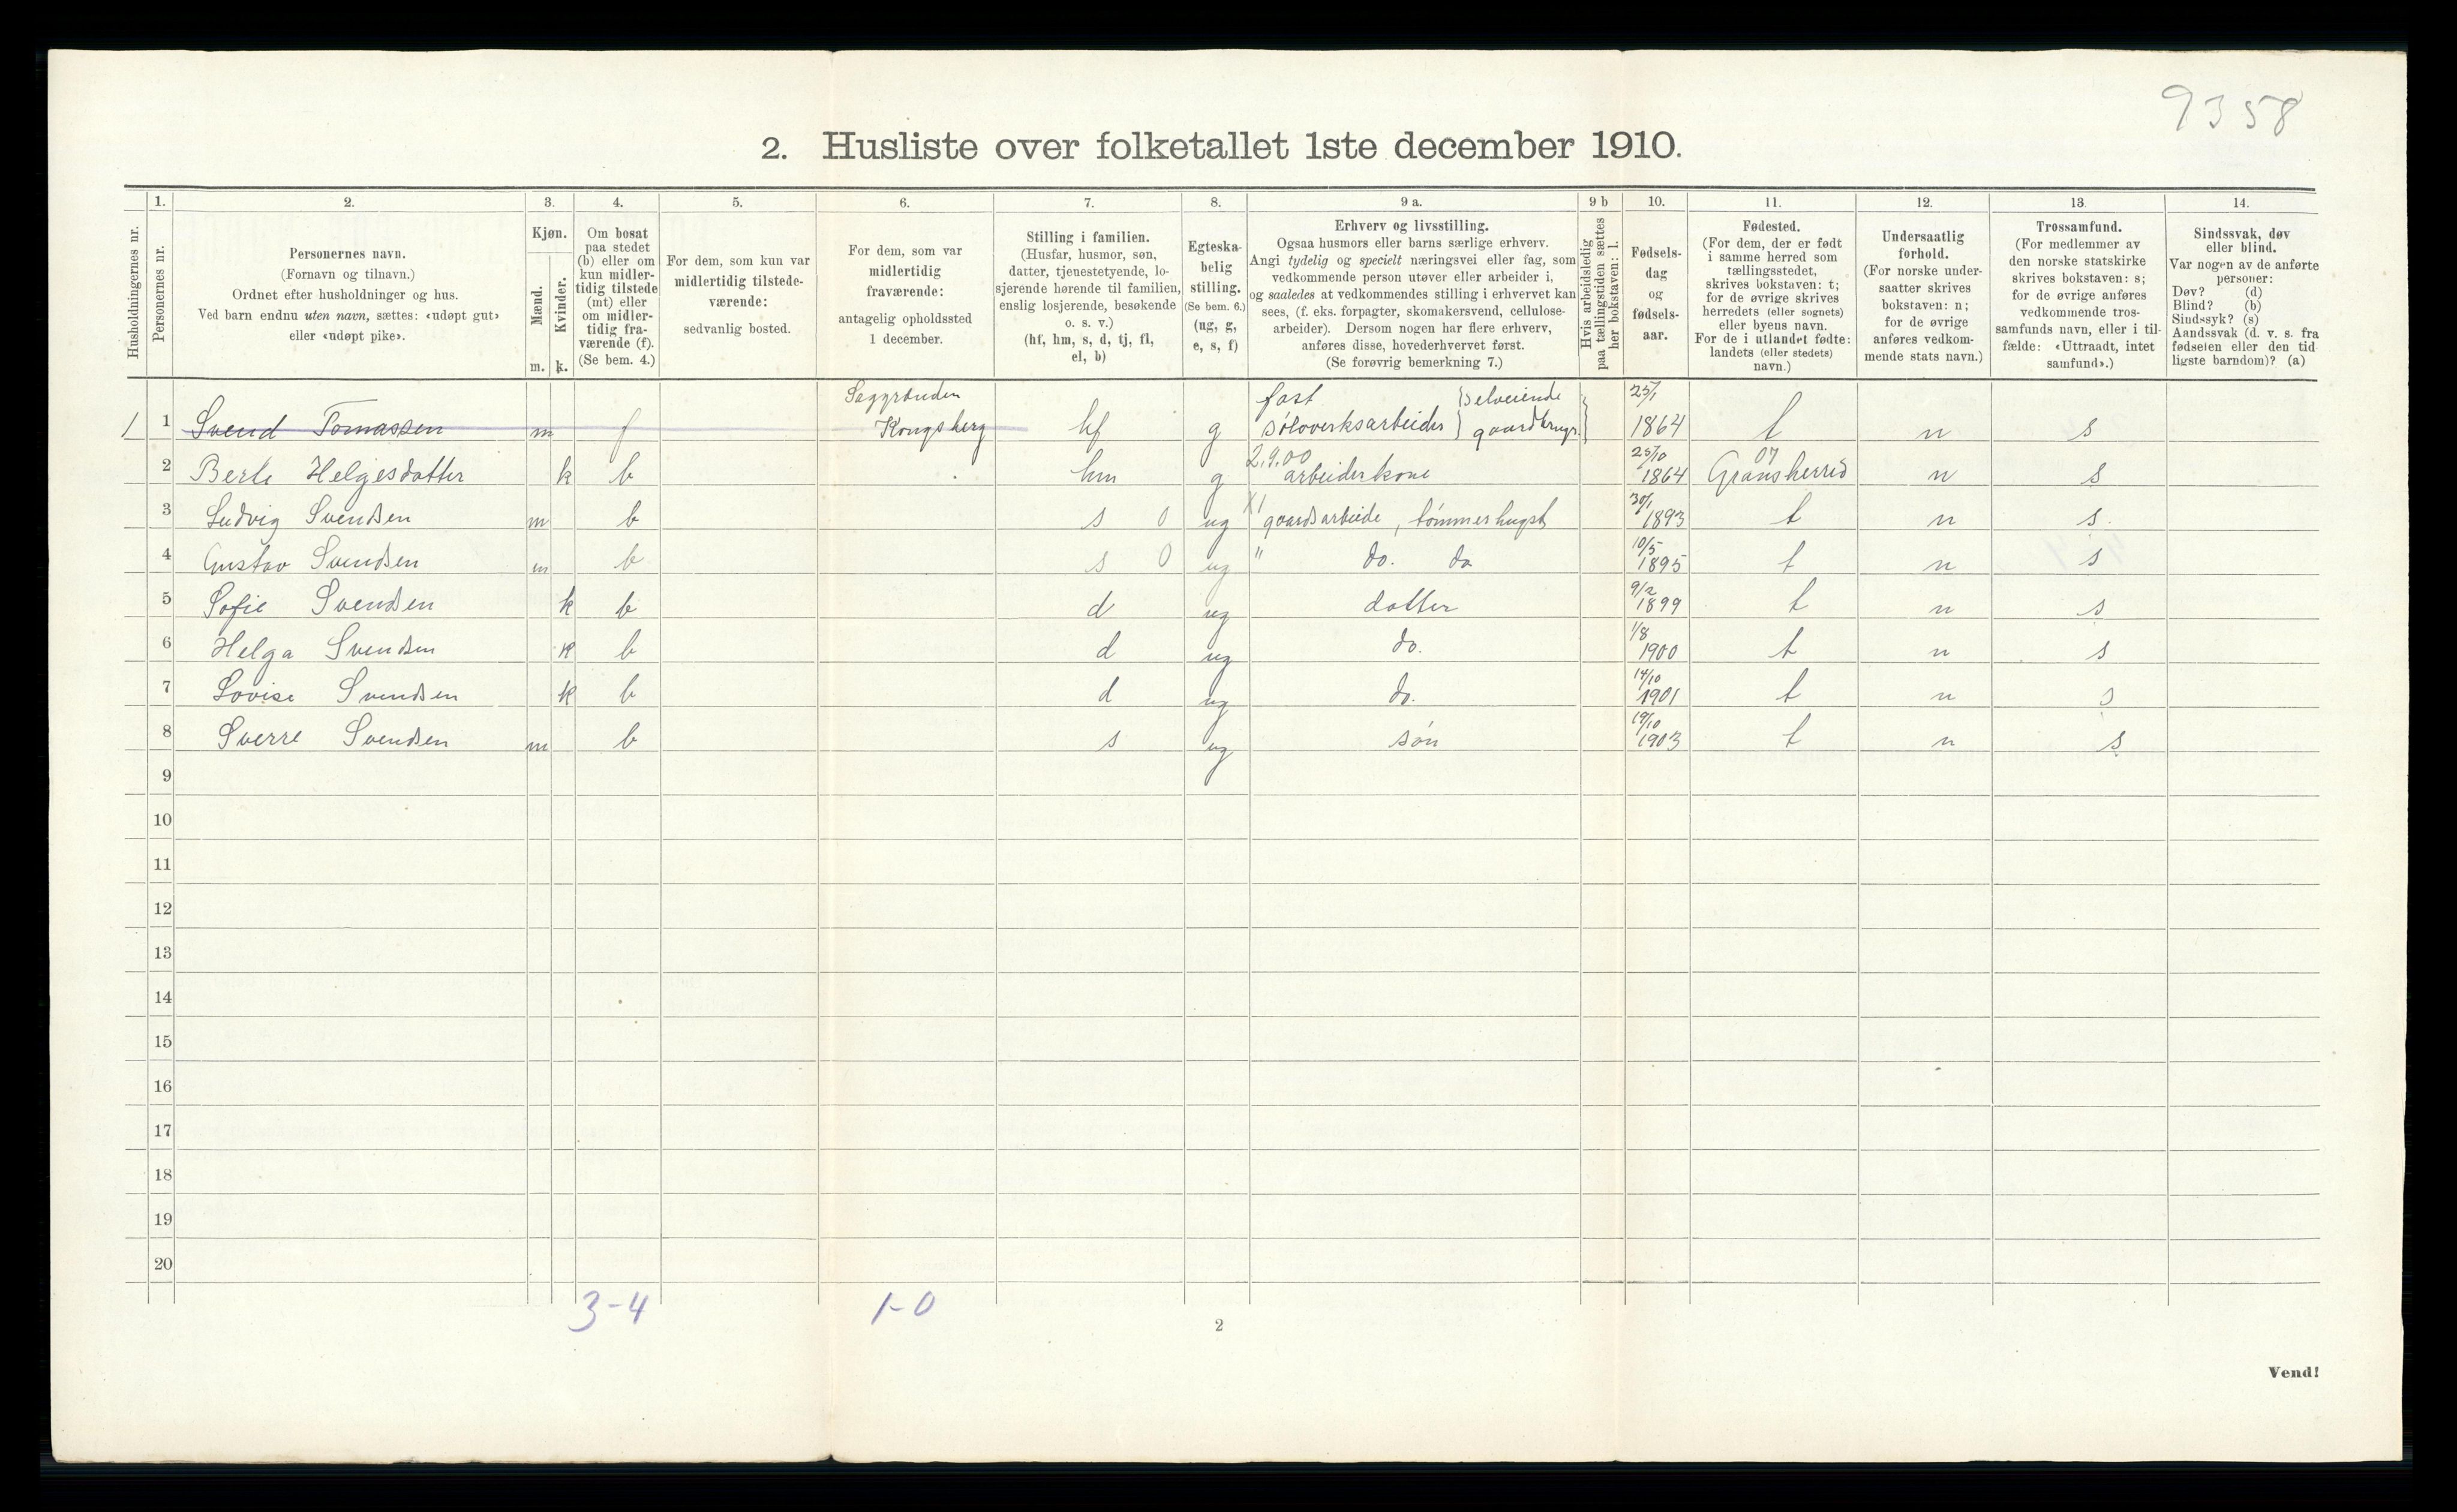 9358
2. Husliste over folketallet 1ste december 1910.
Husholdningernes nr.
1.
Personernes nr.
2.
Personernes navn.
(Fornavn og tilnavn.)
Ordnet efter husholdninger og hus.
Ved barn endnu uten navn, sættes: «udøpt gut»
eller «udøpt pike».
3.
Kjøn.
Mænd.
Kvinder.
m. k.
4.
Om bosat
paa stedet
(b) eller om
kun midler-
tidig tilstede
(mt) eller
om midler-
tidig fra-
værende (f).
(Se bem. 4.)
5.
For dem, som kun var
midlertidig tilstede-
værende:
sedvanlig bosted.
6.
For dem, som var
midlertidig
fraværende:
antagelig opholdssted
1 december.
7.
Stilling i familien.
(Husfar, husmor, søn,
datter, tjenestetyende, lo-
sjerende hørende til familien,
enslig losjerende, besøkende
o. s. v.)
(hf, hm, s, d, tj, fl,
el, b)
8.
Egteska-
belig
stilling.
(Se bem. 6.)
(ug, g,
e, s, f)
9 a.
Erhverv og livsstilling.
Ogsaa husmors eller barns særlige erhverv.
Angi tydelig og specielt næringsvei eller fag, som
vedkommende person utøver eller arbeider i,
og saaledes at vedkommendes stilling i erhvervet kan
sees, (f. eks. forpagter, skomakersvend, cellulose-
arbeider). Dersom nogen har flere erhverv,
anføres disse, hovederhvervet først.
(Se forøvrig bemerkning 7.)
9 b
Hvis arbeidsledig
paa tællingstiden sættes
her bokstaven: l.
10.
Fødsels-
dag
og
fødsels-
aar.
11.
Fødested.
(For dem, der er født
i samme herred som
tællingsstedet,
skrives bokstaven: t;
for de øvrige skrives
herredets (eller sognets)
eller byens navn.
For de i utlandet fødte:
landets (eller stedets)
navn.)
12.
Undersaatlig
forhold.
(For norske under-
saatter skrives
bokstaven: n;
for de øvrige
anføres vedkom-
mende stats navn.)
13.
Trossamfund.
(For medlemmer av
den norske statskirke
skrives bokstaven: s;
for de øvrige anføres
vedkommende tros-
samfunds navn, eller i til-
fælde: «Uttraadt, intet
samfund».)
14.
Sindssvak, døv
eller blind.
Var nogen av de anførte
personer:
Døv? (d)
Blind? (b)
Sindssyk? (s)
Aandssvak (d. v. s. fra
fødselen eller den tid-
ligste barndom)? (a)
1 1 Svend Tomassen m f Saggrenden Kongsberg hf g fast sølvverksarbeider } selveiende gaardbruger } 25/1 1864 t n s
2 Berte Helgesdatter k b hm g 2,9.00 arbeiderkone 25/10 1864 07 Gransherred n s
3 Ludvig Svendsen m b s 0 ug X1 gaardsarbeide, tømmerhugst 30/1 1893 t n s.
4 Gustav Svendsen m b s 0 ug " do. do 10/5 1895 t n s
5 Sofie Svendsen k b d ug datter 9/2 1899 t n s
6 Helga Svendsen k b d ug do. 1/8 1900 t n s
7 Lovise Svendsen k b d ug do. 14/10 1901 t n s
8 Sverre Svendsen m b s ug søn 19/10 1903 t n s
9
10
11
12
13
14
15
16
17
18
19
20
3-4 1-0
2
Vend!